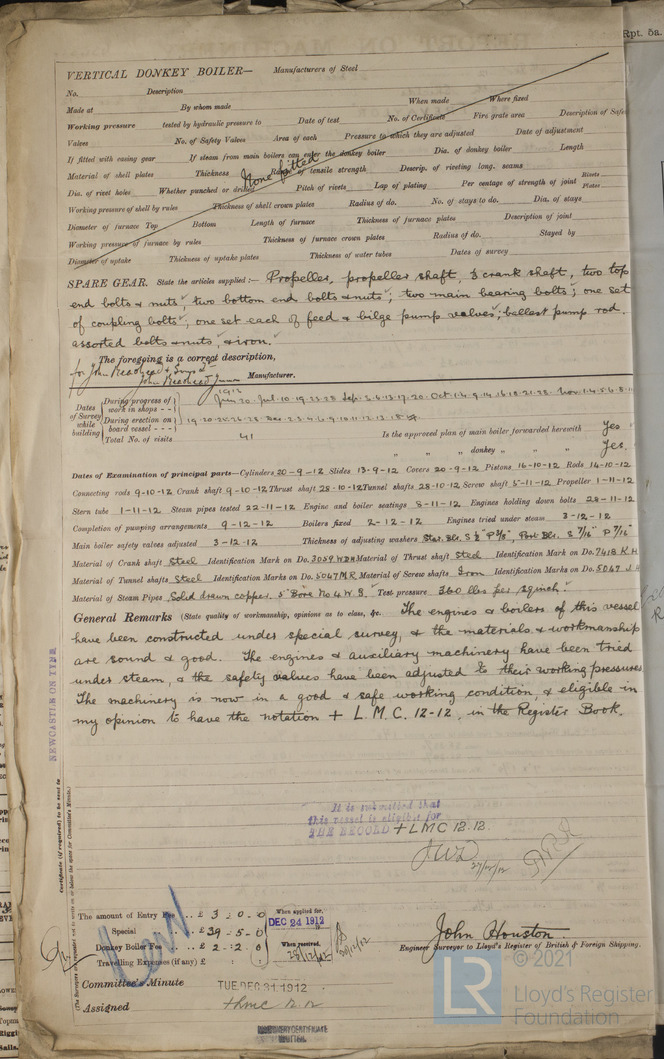 Rpt. 5a.
VERTICAL DONKEY BOILER— Manufacturers of Steel
No. Description
Made at By whom made When made Where fixed
Working pressure tested by hydraulic pressure to Date of test No. of Certificate Fire grate area Description of Safe
Valves No. of Safety Valves Area of each Pressure to which they are adjusted Date of adjustment
If fitted with easing gear If steam from main boilers can enter the donkey boiler Dia. of donkey boiler Length
Material of shell plates Thickness Range of tensile strength Descrip. of riveting long. seams
None fitted
Dia. of rivet holes Whether punched or drilled Pitch of rivets Lap of plating Per centage of strength of joint Rivets Plates
Working pressure of shell by rules Thickness of shell crown plates Radius of do. No. of stays to do. Dia. of stays
Diameter of furnace Top Bottom Length of furnace Thickness of furnace plates Description of joint
Working pressure of furnace by rules Thickness of furnace crown plates Radius of do. Stayed by
Diameter of uptake Thickness of uptake plates Thickness of water tubes Dates of survey
SPARE GEAR. State the articles supplied:— Propeller, propeller shaft, crank shaft, two top
end bolts & nuts, two bottom end bolts & nuts, two main bearing bolts, one set
of coupling bolts, one set each of feed & bilge pump valves; ballast pump rod.
assorted bolts & nuts, & iron.
The foregoing is a correct description,
for John Readhead & Sons Ld
John Readhead Junr Manufacturer.
Dates of Survey while building
During progress of work in shops - - 1912 Jun 20. Jul. 10. 19. 23. 28 Sep. 2. 6. 12. 17. 20. Oct. 1. 4. 9. 14. 16. 18. 21. 28. Nov. 1. 4. 5. 6. 8. 11.
During erection on board vessel - - - 19. 20. 22. 26. 28 Dec. 2. 3. 4. 6. 9. 10. 11. 12. 13. 18.
Total No. of visits 41 Is the approved plan of main boiler forwarded herewith Yes
" " " donkey " " " Yes.
Dates of Examination of principal parts—Cylinders 20-9-12 Slides 13-9-12 Covers 20-9-12 Pistons 16-10-12 Rods 14-10-12
Connecting rods 9-10-12 Crank shaft 9-10-12 Thrust shaft 28-10-12 Tunnel shafts 28-10-12 Screw shaft 5-11-12 Propeller 1-11-12
Stern tube 1-11-12 Steam pipes tested 22-11-12 Engine and boiler seatings 8-11-12 Engines holding down bolts 28-11-12
Completion of pumping arrangements 9-12-12 Boilers fixed 2-12-12 Engines tried under steam 3-12-12
Main boiler safety valves adjusted 3-12-12 Thickness of adjusting washers Star. Blr. S ½" P 3/8", Port Blr. S 7/16" P 7/16"
Material of Crank shaft Steel Identification Mark on Do. 3059 WDH Material of Thrust shaft Steel Identification Mark on Do. 7418 K H
Material of Tunnel shafts Steel Identification Marks on Do. 5047 MR Material of Screw shafts Iron Identification Marks on Do. 5047 J H
Material of Steam Pipes Solid drawn copper. 5" Bore No 4 W.G. Test pressure 360 lbs per sq inch.
General Remarks (State quality of workmanship, opinions as to class, &c. The engines & boilers of this vessel
have been constructed under special survey, & the materials & workmanship
are sound & good. The engines & auxiliary machinery have been tried
under steam, & the safety valves have been adjusted to their working pressures
The machinery is now in a good & safe working condition, & eligible in
my opinion to have the notation + L.M.C. 12-12, in the Register Book.
NEWCASTLE ON TYNE
Certificate (if required) to be sent to
(The Surveyors are requested not to write on or below the space for Committee's Minute.)
It is submitted that
this vessel is eligible for
THE RECORD + LMC 12.12.
JWD
27/12/12
The amount of Entry Fee .. £ 3 : 0 : 0
Special .. £ 39 : 5 : 0
Donkey Boiler Fee .. £ 2 : 2 : 0
Travelling Expenses (if any) £ : :
When applied for,
DEC 24 1912
When received,
28/12/12
30/12/12
John Houston
Engineer Surveyor to Lloyd's Register of British & Foreign Shipping.
Committee's Minute TUE. DEC. 31. 1912
Assigned + Lmc 12.12
MACHINERY CERTIFICATE
WRITTEN.
© 2021
LR
Lloyd's Register
Foundation